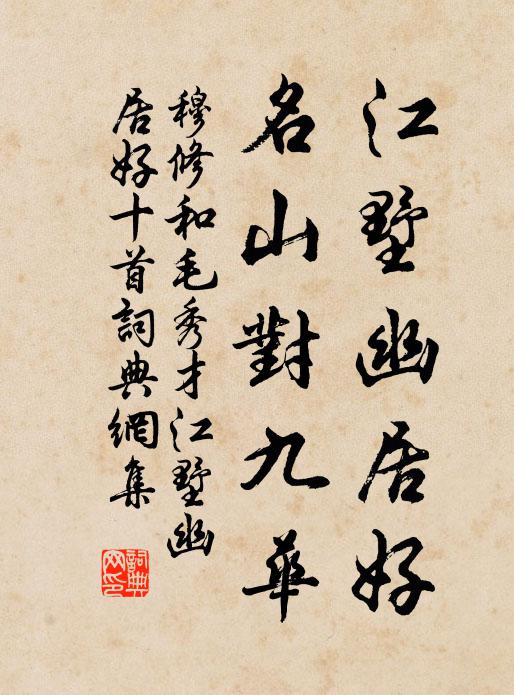 江墅幽居好
名山對九華
穆修和毛秀才江墅幽
居好十首詞典網集
詞典
网印